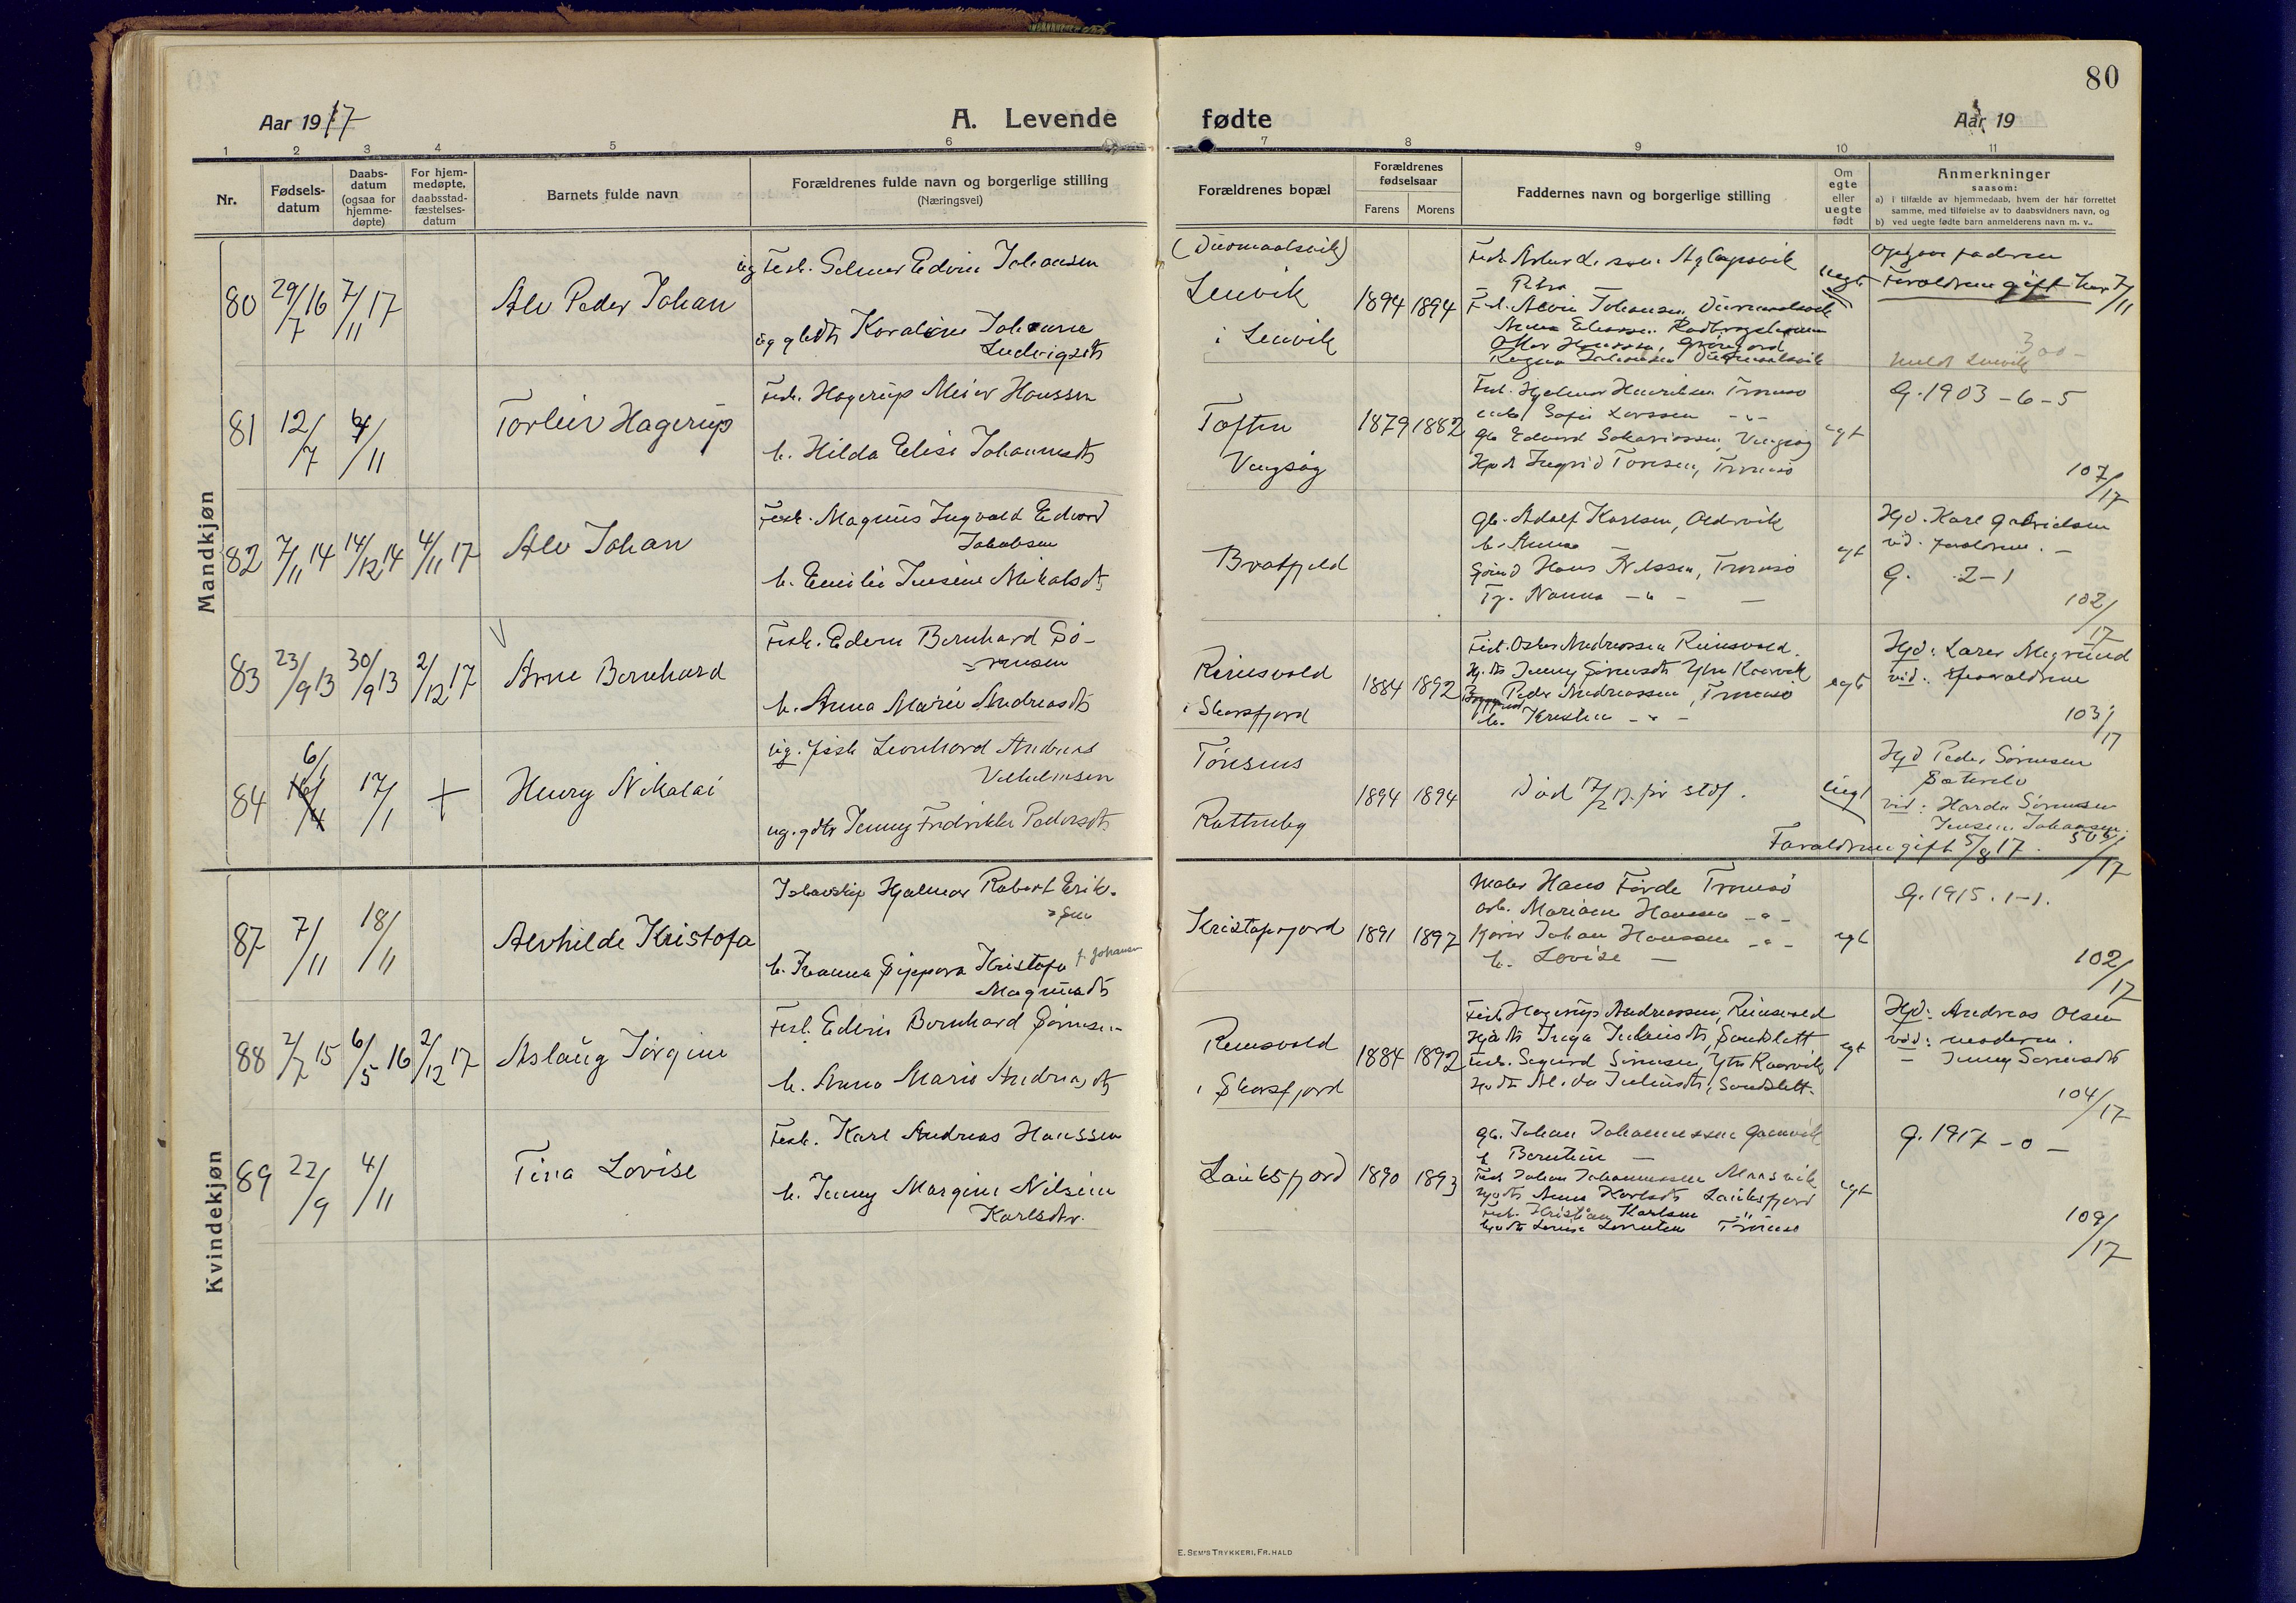 80
Aar 1917
A. Levende fødte
Aar 19
1 2 3 4 5 6 7 8 9 10 11
Nr.
Fødsels-
datum
Daabs-
datum
(ogsaa for
hjemme-
døpte)
For hjem-
medøpte,
daabsstad-
fæstelses-
datum
Barnets fulde navn
Forældrenes fulde navn og borgerlige stilling
(Næringsvei)
Forældrenes bopæl
Forældrenes
fødselsaar
Farens Morens
Faddernes navn og borgerlige stilling
Om
egte
eller
uegte
født
Anmerkninger
saasom:
a) i tilfælde av hjemmedaab, hvem der har forrettet
samme, med tilføielse av to daabsvidners navn, og
b) ved uegte fødte barn anmelderens navn m. v..
Mandkjøn
80 29/7 16 7/11 17 Alv Peder Johan
ug Fisk. Selmer Edvin Johansen
ug gbdtr Karoline Johanna
Ludvigsdtr
Lenvik
i Lenvik
1894 1894
Petra
Fisk. Alvin Johansen
Anna
Ragna Johansen
uegte
Opgave faderen
Forældrene gift her 7/11
300
meldt Lenvik
81 12/7 4/11 Torleiv Hagerup
Fisk. Hagerup Meier Hanssen
h. Hilda Elise Johannesdtr
Toften
Vengsøy
1879 1882
Fisk. Hjalmar Henriksen Tromsø
Sofie Larssen - " -
gb. Edvard Sakariassen, Vengsøy
Hjdt Ingrid Tønsen, Tromsø
egt
G. 1903 - 6 - 5
107/17
82 7/11 14 14/12 14 4/11 17 Alv Johan
Fisk. Magnus Ingvald Edvard
Jakobsen
h. Emilie Jensine Nikolsdtr
Bratfjeld
gb. Adolf Karlsen, Oldervik
h. Anna
Hans Nilssen, Tromsø
Nanna - " -
egt
Hjd. Karl Gabrielsen
vid. forældrene. -
G. 2-1
102/17
83 23/9 13 30/9 13 2/12 17 Arne Bernhard
Fisk. Edvin Bernhard Sø-
rensen
h. Anna Marie Andreasdtr
Reinsvold
i Skarsfjord
1884 1892
Fisk. Oskar Andreassen Reinsvold.
Hj.dtr Jenny Sørensdtr Ytre Kaarvik
Peder Andreassen, Tromsø
h. Kristine - " -
egte
Hjd: Lars Mægrund
vid: Forældrene
103/17
84 6/1 17/1 + Henry Nikolai
ug. fisk Leonhard Andreas
Vilhelmsen
ug. gdtr Jenny Fredrikke Pedersdtr
Tønsnes
1894 1894
Død 17/2 17. før stdf.
uegt
Hjd Peder Sørensen
Sætrelv
vid: Harda Sørensen
Jensen Johansen.
Forældrene gift 5/8 17.
50b/17
Kvindekjøn
87 7/11 18/11 Alvhilde Kristofa
Ishavskip Hjalmar Robert Erik-
sen
h. Joanna Sippora Kristofa f. Johansen
Magnusdtr
Kristofjord
1891 1897
Maler HansFørde Tromsø
arb. Marian Hanssen - " -
Kjører Johan Hanssen - " -
h. Lovise -
egt
G. 1915. 1-1.
102/17
88 2/7 15 6/5 16 2/12 17 Aslaug Jørgine
Fisk. Edvin Bernhard Sørensen
h. Anna Marie Andreasdtr
Reinsvold
i Skarsfjord
1884 1892
Fisk Hagerup Andreassen, Reinsvold
Hjdtr Inga Juliusdtr, Sandslett
Fisk. Sigurd Sørensen, Ytre Kaarvik
Hjdtr Alida Juliusdtr, Sandslett.
egt
Hjd: Andreas Olsen
vid: moderen.
- Jenny Sørensdtr
104/17
89 22/9 4/11 Tina Lovise
Fisk. Karl Andreas Hanssen
h. Jenny Margine Nilsine
Karlsdtr.
Lauksfjord
1890 1893
gb. Johan Johannessen
h Berntine -
Fisk Johan Johannessen Maasvik
Hjdtr Anna Karlsdtr Lauksfjord
Fisk. Kristian Karlsen "
Hjdtr Lovise Lorentsen Tromsø
egt
G. 1917 - 0 -
109/17
E. SEM'S TRYKKERI, FR.HALD